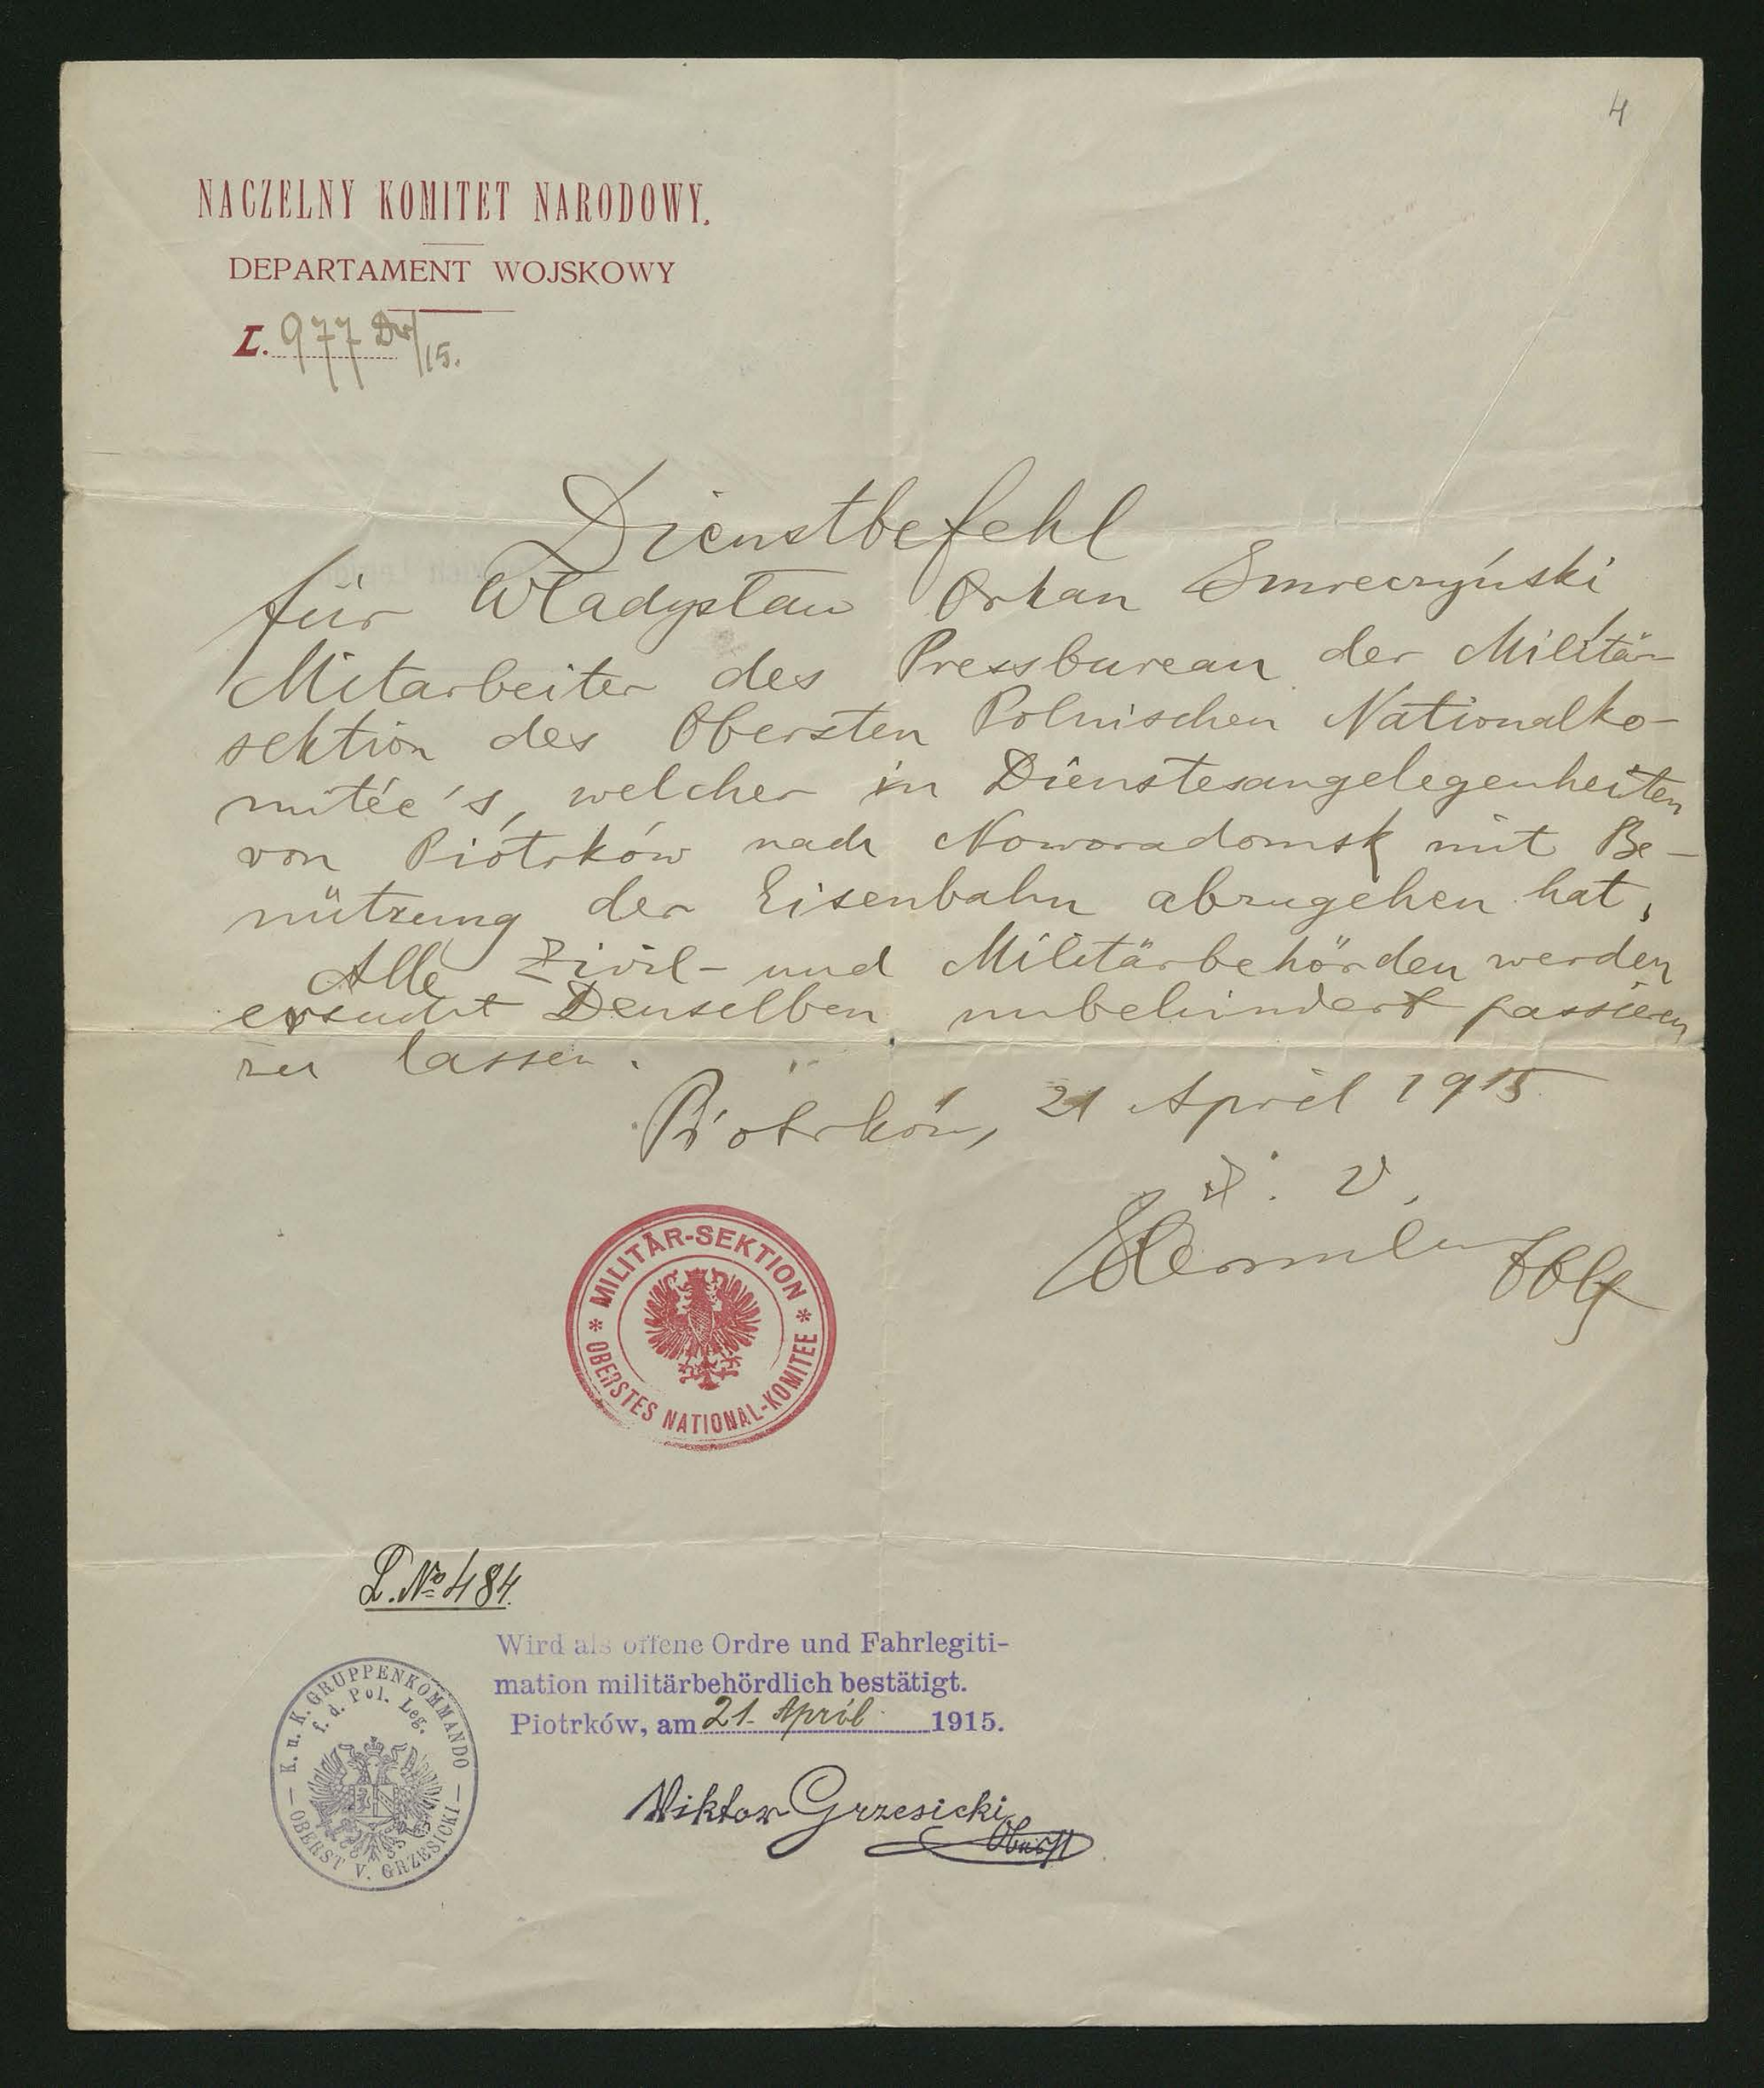 4
NACZELNY KOMITET NARODOWY.
DEPARTAMENT WOJSKOWY
L. 977 Dw/15.
Dienstbefehl
für Władysław Orkan Smreczyński
Mitarbeiter des Pressbureau der Militär-
sektion des Obersten Polnischen Nationalko-
mitée's, welcher in Dienstesangelegenheiten
von Piótrków nach Noworadomsk mit Be-
nützung der Eisenbahn abzugehen hat,
Alle Zivil- und Militärbehörden werden
ersucht Denselben unbehindert passieren
zu lassen.
Piótrków, 21 April 1915
I. V.
MILITÄR-SEKTION
* OBERSTES NATIONAL-KOMITEE *
L. No 484.
Wird als offene Ordre und Fahrlegiti-
mation militärbehördlich bestätigt.
Piotrków, am 21. April 1915.
K. u. K. GRUPPENKOMMANDO
f. d. Pol. Leg.
— OBERST V. GRZESICKI —
Viktor Grzesicki
Oberst